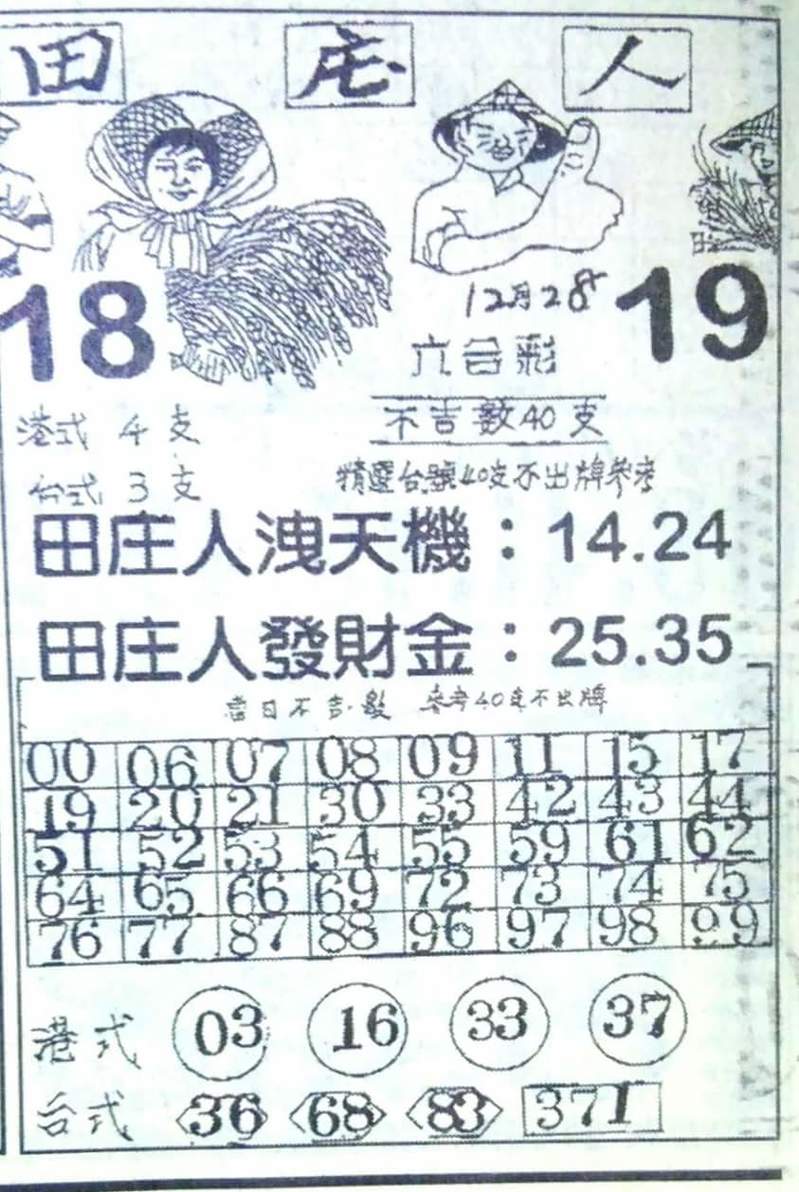 田庄人
18
12月28
19
六合彩
港式 4 支
不吉數40支
台式 3 支
精選台號40支不出牌參考
田庄人洩天機：14.24
田庄人發財金：25.35
當日不吉數 參考40支不出牌
00 06 07 08 09 11 15 17
19 20 21 30 33 42 43 44
51 52 53 54 55 59 61 62
64 65 66 69 72 73 74 75
76 77 87 88 96 97 98 99
港式 03 16 33 37
台式 36 68 83 371